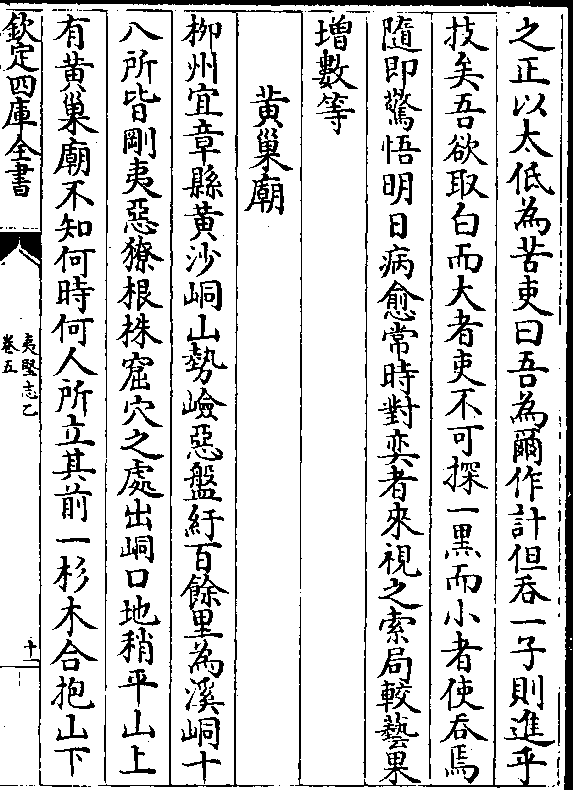 之正以太低為苦吏曰吾為爾作計但吞一子則進乎
技矣吾欲取白而大者吏不可探一黑而小者使吞焉
隨即驚悟明日病愈常時對奕者來視之索局較藝果
增數等
黃巢廟
柳州宜章縣黃沙峒山勢嶮惡盤紆百餘里為溪峒十
八所皆剛夷惡獠根株窟穴之處出峒口地稍平山上
有黃巢廟不知何時何人所立其前一杉木合抱山下
欽定四庫全書
夷堅志乙
卷五
十